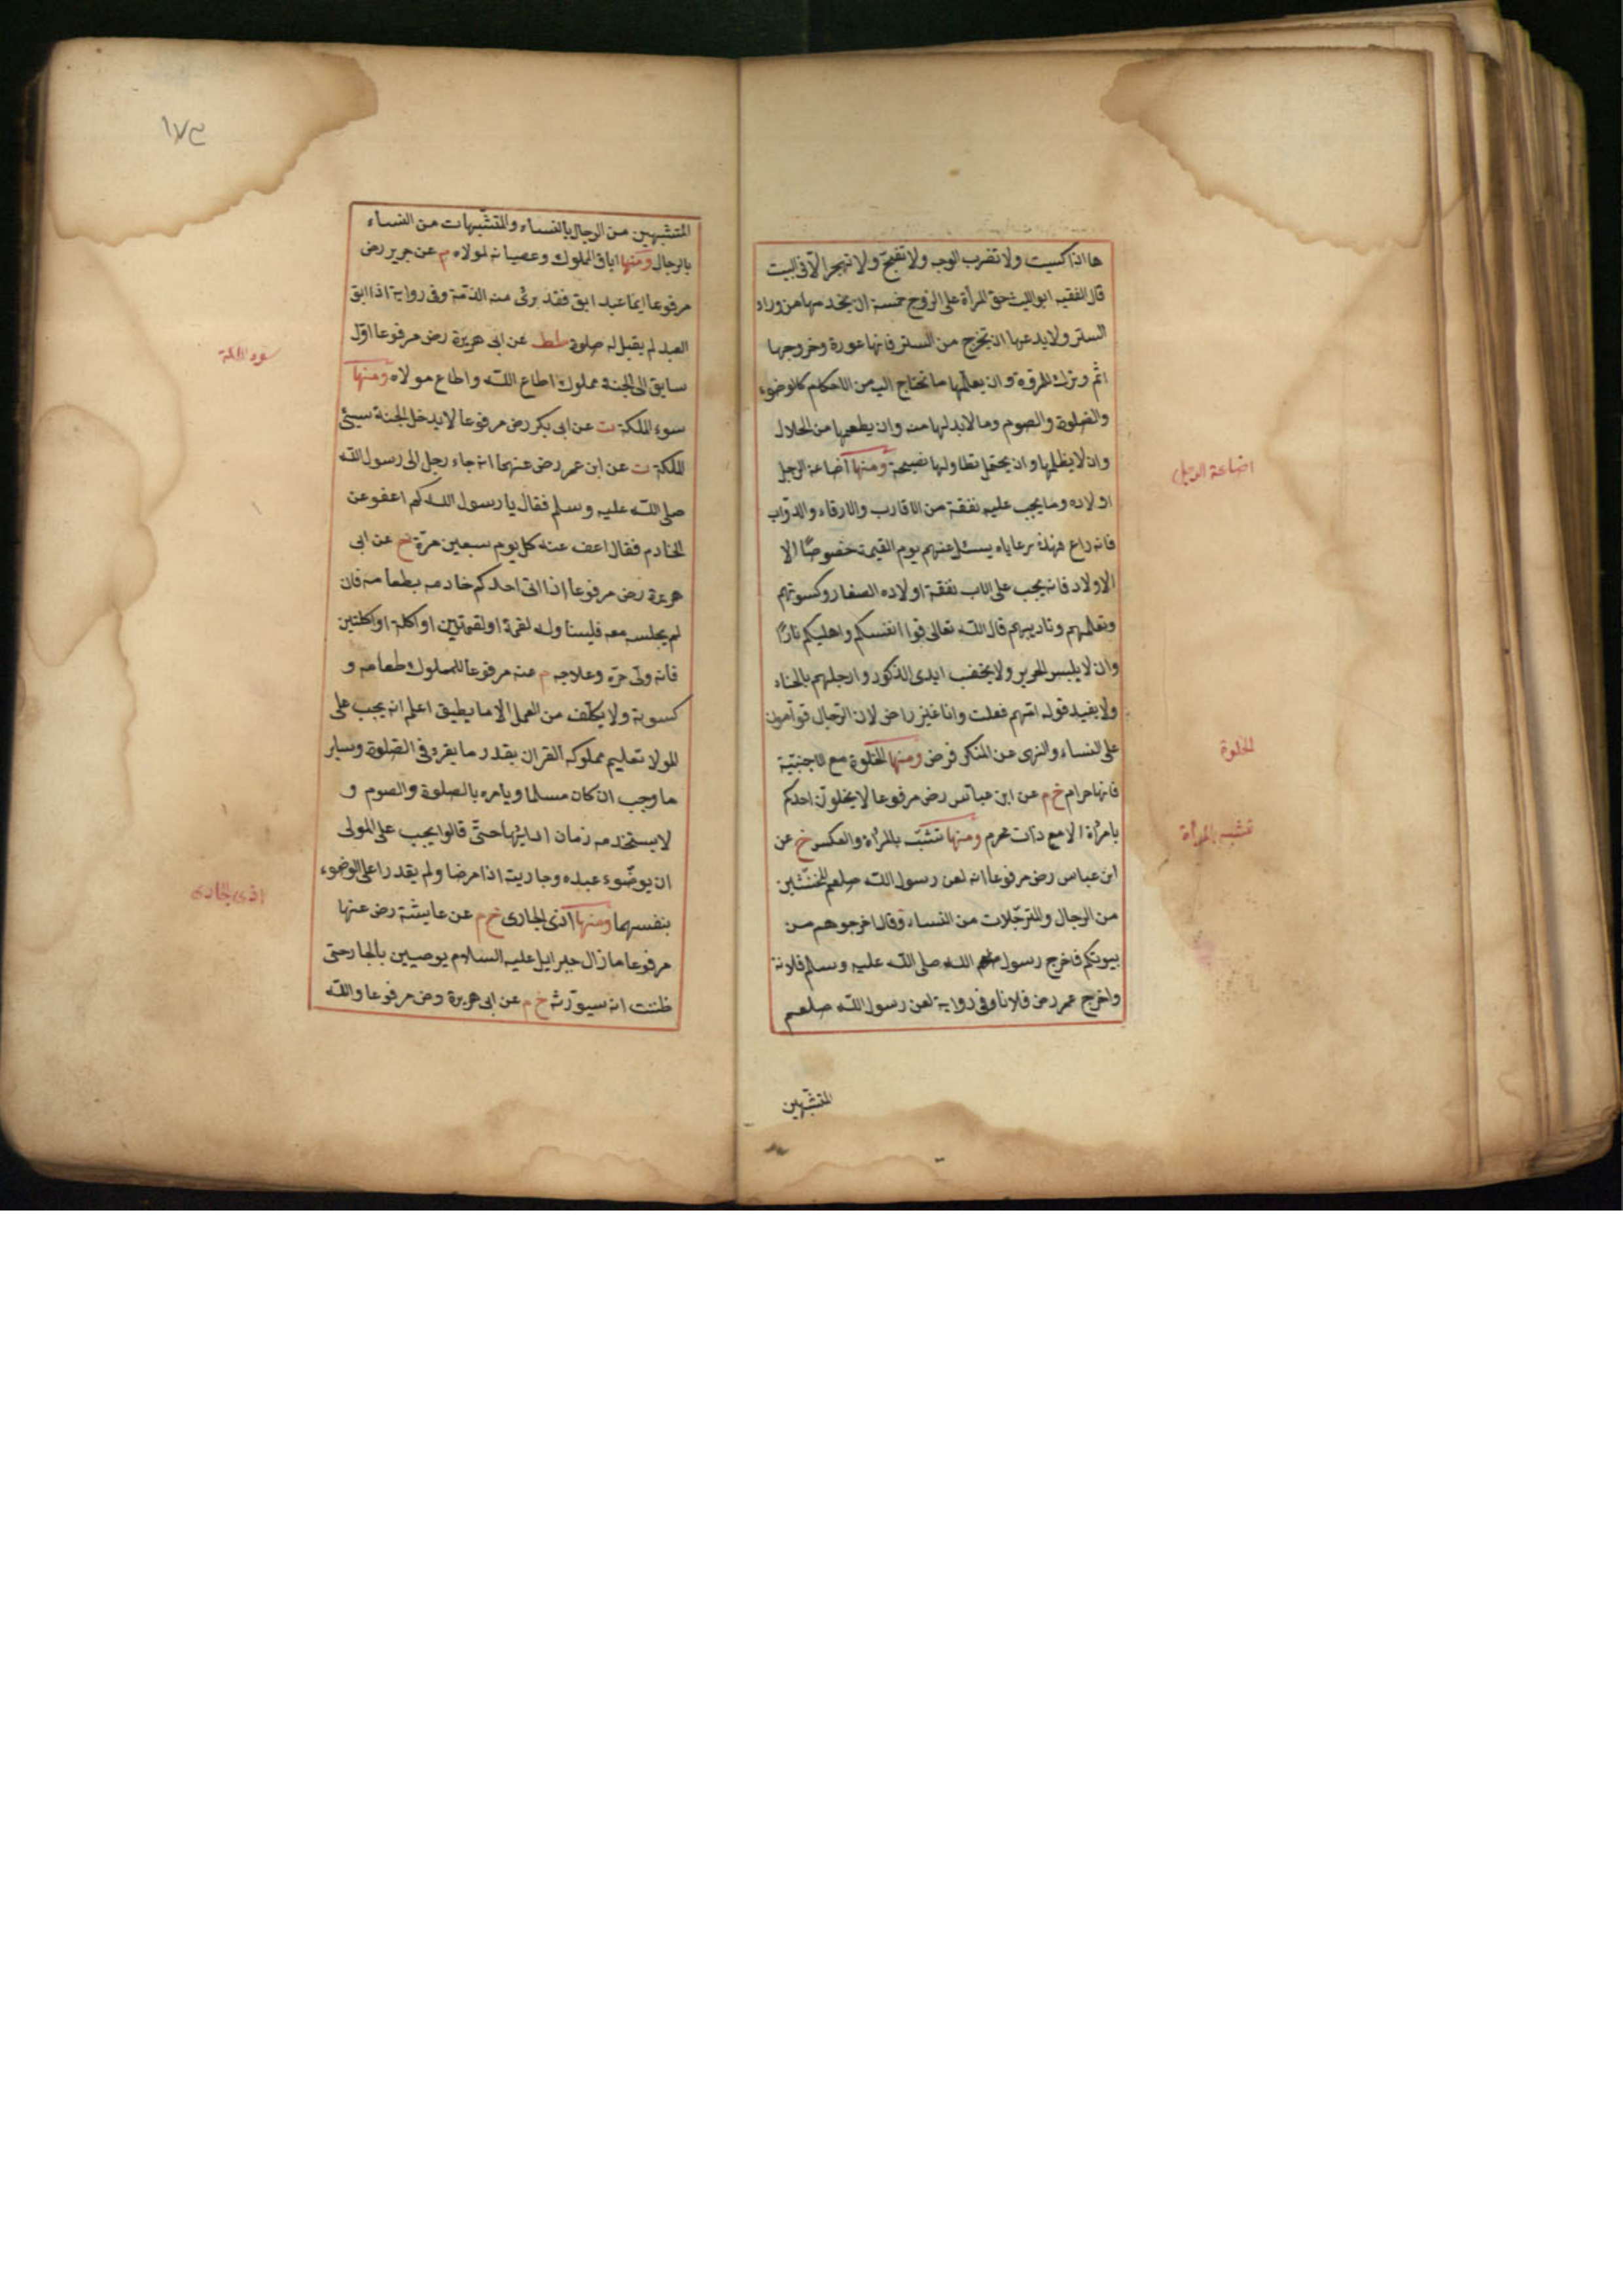 ها اذا كسيت ولا تضرب الوجه ولا تقبح ولا تهجر الا فى البيت
قال الفقيه ابو الليث حق المرأة على الزوج خمسة ان يخدمها من وراء
الستر ولا يدعها ان تخرج من الستر فانها عورة وخروجها
اثم وترك للمروة وان يعلمها ما تحتاج اليه من الاحكام كالوضوء
والصلوة والصوم وما لا بد لها منه وان يطعمها من الحلال
وان لا يظلمها وان يحتمل تطاولها نصيحة ومنها اضاعة الرجل
اضاعة الرجل
اولاده وما يجب عليه نفقته من الاقارب والارقاء والدواب
فانه راع فهذه رعاياه يسئل عنهم يوم القيمة خصوصًا الا
الاولاد فانه يجب على الاب نفقة اولاده الصغار وكسوتهم
وتعلمهم وتاديبهم قال الله تعالى قوا انفسكم واهليكم نارًا
وان لا يلبس الحرير ولا يخضب ايدى الذكور وارجلهم بالحناء
ولا يفيد قوله انتهم فعلت وانا غير راض لان الرجال قوامون
على النساء والنهى عن المنكر فرض ومنها الخلوة مع الاجنبية
الخلوة
فانها حرام خ م عن ابن عباس رض مرفوعا لا يخلون احدكم
بامرأة الا مع ذات محرم ومنها تشبه بالمرأة والعكس خ عن
تشبه المرأة
ابن عباس رض مرفوعا انه لعن رسول الله صلعم المخنثين
من الرجال والمترجلات من النساء وقال اخرجوهم من
بيوتكم فاخرج رسول الله صلى الله عليه وسلم فلانة
واخرج عمر رض فلانا وفى رواية لعن رسول الله صلعم
المتشبهين
١٧٣
المتشبهين من الرجال بالنساء والمتشبهات من النساء
بالرجال ومنها اباق المملوك وعصيانه لمولاه م عن جرير رض
مرفوعا ايما عبد ابق فقد برئ منه الذمة وفى رواية اذا ابق
العبد لم يقبل له صلوة طط عن ابى هريرة رض مرفوعا اول
سابق الى الجنة مملوك اطاع الله واطاع مولاه ومنها
سوء الملكة
سوء الملكة ت عن ابى بكر رض مرفوعا لا يدخل الجنة سيئ
الملكة ت عن ابن عمر رض عنهما انه جاء رجل الى رسول الله
صلى الله عليه وسلم فقال يا رسول الله كم اعفو عن
الخادم فقال اعف عنه كل يوم سبعين مرة خ عن ابى
هريرة رض مرفوعا اذا اتى احدكم خادمه بطعامه فان
لم يجلسه معه فليناوله لقمة او لقمتين او اكلة او اكلتين
فانه ولى حره وعلاجه م عنه مرفوعا للمملوك طعامه و
كسوته ولا يكلف من العمل الا ما يطيق اعلم انه يجب على
المولا تعليم مملوكه القران بقدر ما يقرء فى الصلوة وسائر
ما وجب ان كان مسلما ويامره بالصلوة والصوم و
لا يستخدمه زمان ادائها حتى قالوا يجب على المولى
ان يوضوء عبده وجاريته اذا مرضا ولم يقدرا على الوضوء
بنفسهما ومنها اذى الجارى خ م عن عايشة رض عنها
اذى الجارى
مرفوعا ما زال جبرايل عليه السلام يوصيين بالجار حتى
ظننت انه سيورثه خ م عن ابى هريرة رض مرفوعا والله